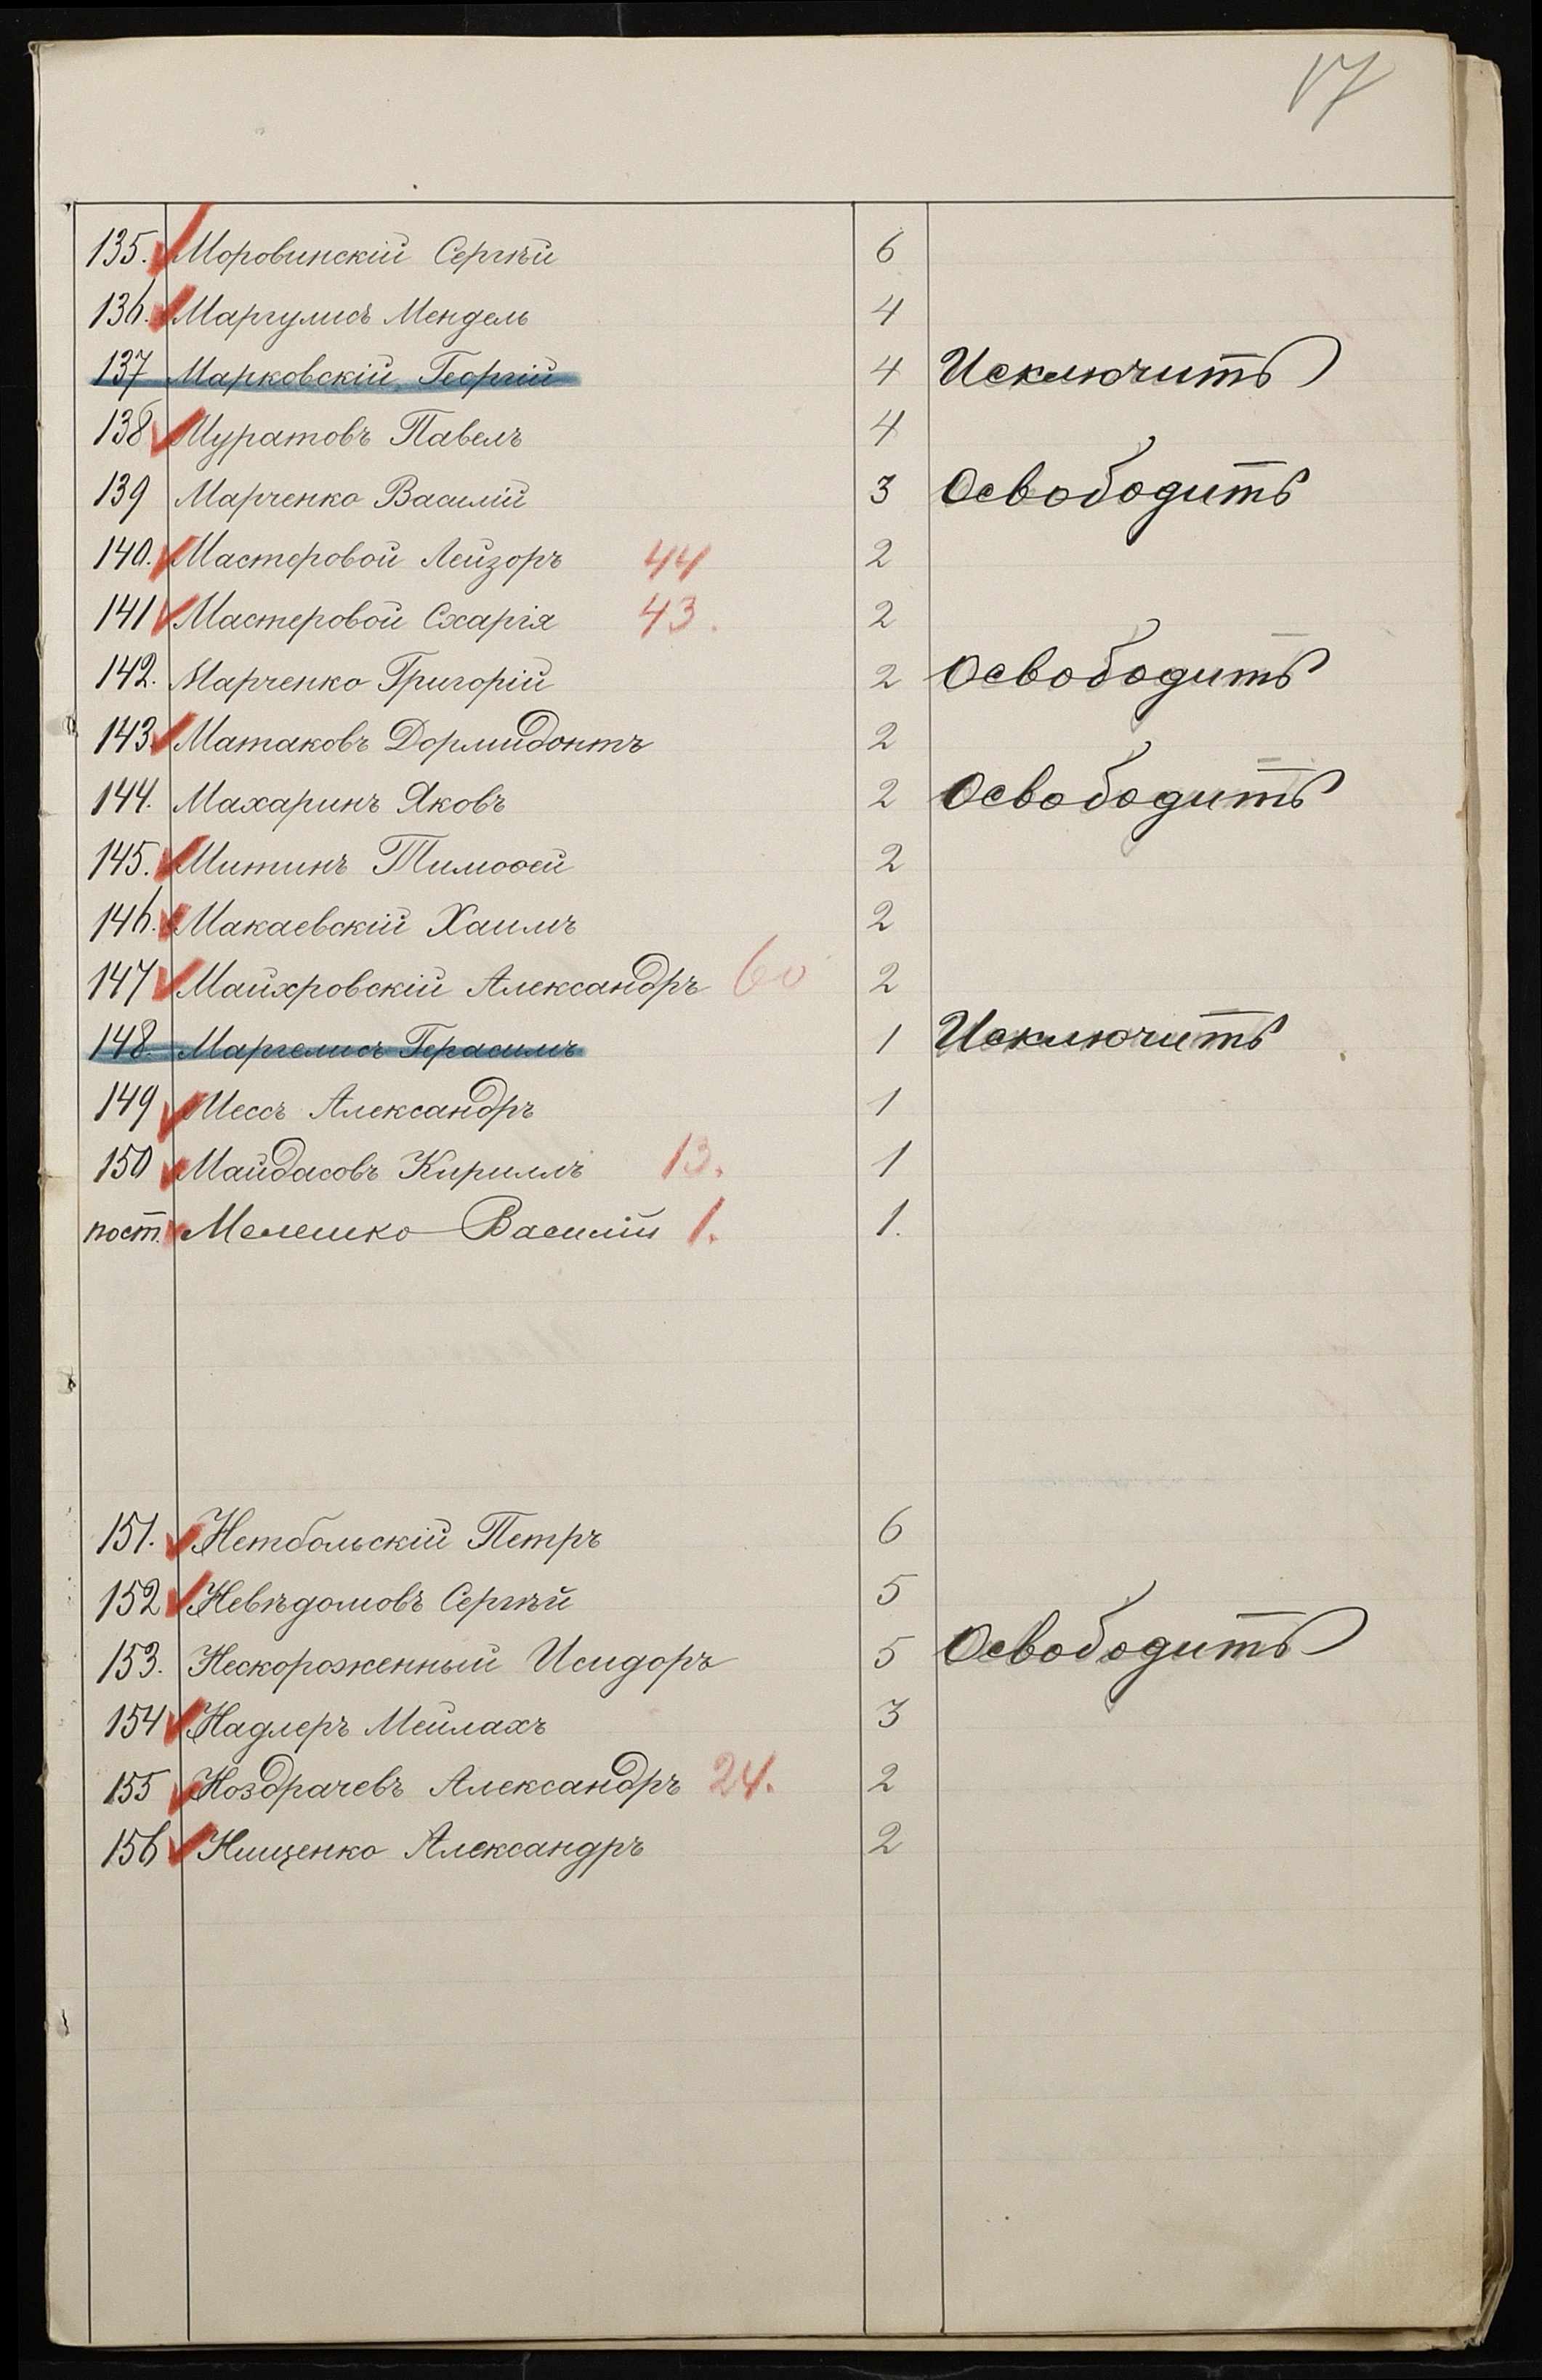 17
135. Моровинскій Сергѣй 6
136. Маргулисъ Мендель 4
137 Марковскій Георгій 4 Исключить
138 Муратовъ Павелъ 4
139 Марченко Василій 3 Освободить
140. Мастеровой Лейзоръ 44 2
141 Мастеровой Схаргія 43. 2
142. Марченко Григорій 2 Освободить
143. Матаковъ Дормидонтъ 2
144. Махаринъ Яковъ 2 Освободить
145. Митинъ Тимоѳей 2
146. Макаевскій Хаимъ 2
147 Майхровскій Александръ 60 2
148. Маргелисъ Герасимъ 1 Исключить
149 Мессъ Александръ 1
150 Майдасовъ Кириллъ 13. 1
пост. Мелешко Василій 1. 1.
151. Нетбольскій Петръ 6
152 Невѣдомовъ Сергѣй 5
153. Нескороженный Исидоръ 5 Освободить
154 Надлеръ Мейлахъ 3
155 Ноздрачевъ Александръ 24. 2
156 Нищенко Александръ 2